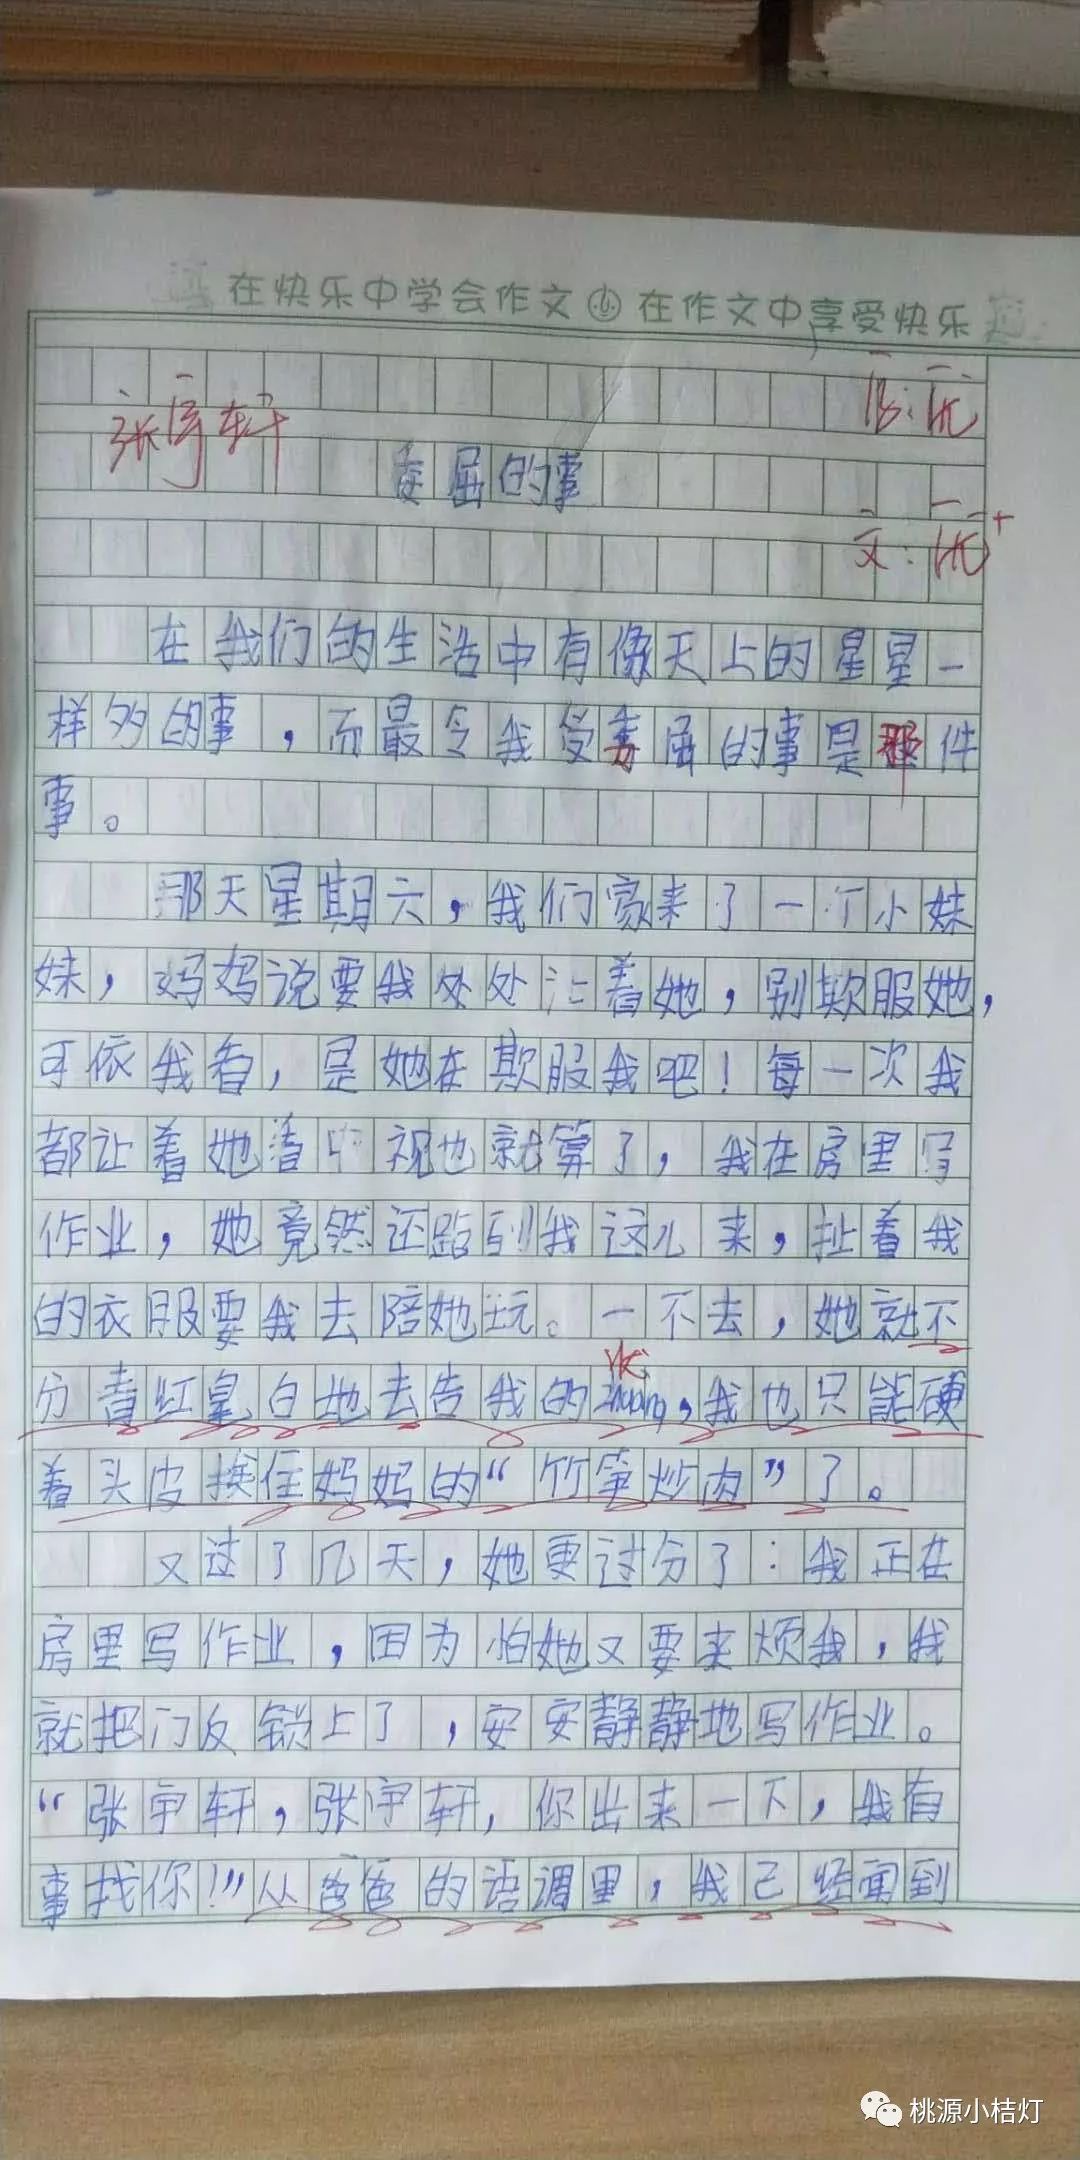 在快乐中学会作文 在作文中享受快乐
张宇轩
书:优
委屈的事
文:优+
在我们的生活中有像天上的星星一
样多的事,而最令我受委屈的事是那件
事。
那天星期六,我们家来了一个小妹
妹,妈妈说要我处处让着她,别欺服她,
可依我看,是她在欺服我吧!每一次我
都让着她看中视也就算了,我在房里写
作业,她竟然还跑到我这儿来,扯着我
的衣服要我去陪她玩。一不去,她就不
分青红皇白地去告我的zhuàng,我也只能硬
状
着头皮挨住妈妈的“竹笋炒肉”了。
又过了几天,她更过分了:我正在
房里写作业,因为怕她又要来烦我,我
就把门反锁上了,安安静静地写作业。
“张宇轩,张宇轩,你出来一下,我有
事找你!”从爸爸的语调里,我已经闻到
桃源小桔灯